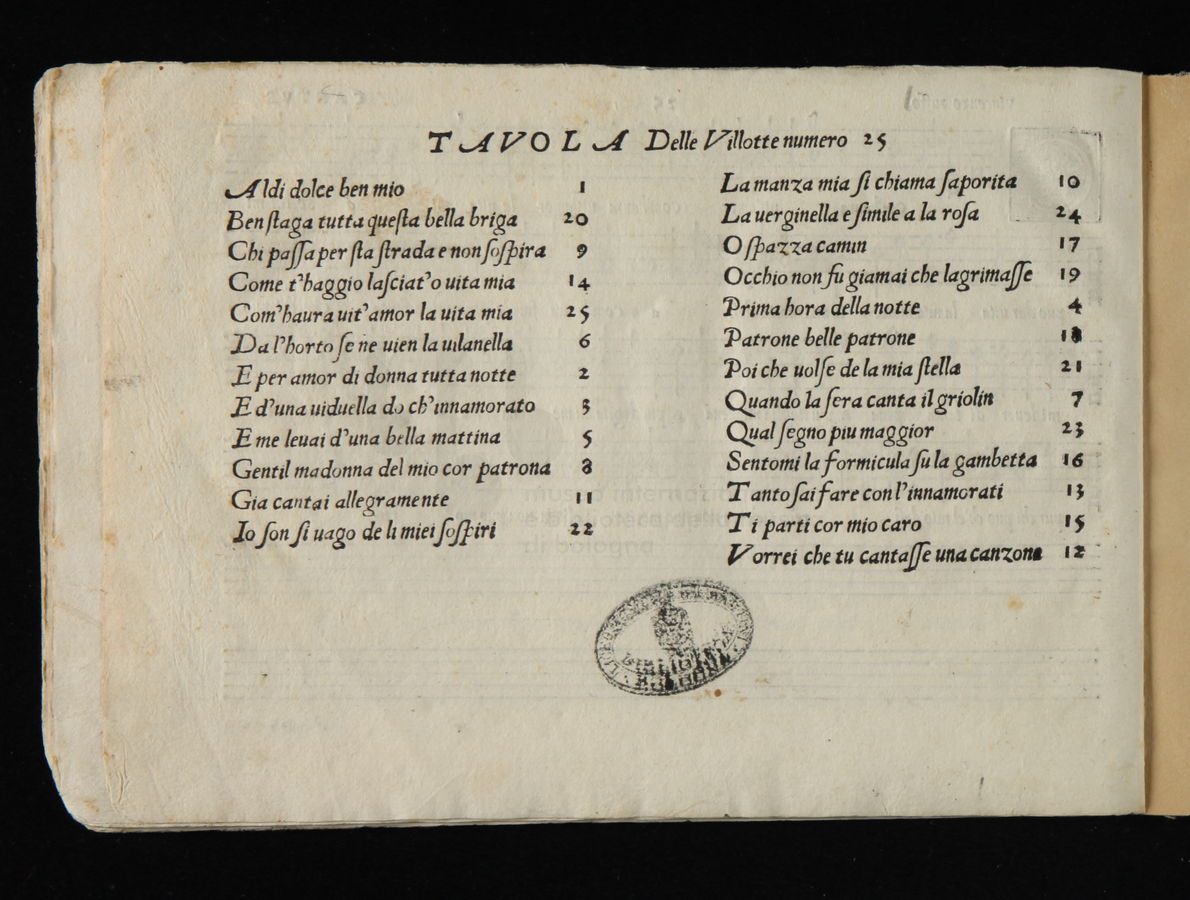 TAVOLA Delle Villotte numero 25
Aldi dolce ben mio 1
Ben ſtaga tutta queſta bella briga 20
Chi paſſa per ſta ſtrada e non ſoſpira 9
Come t'haggio laſciat'o uita mia 14
Com'haura uit'amor la uita mia 25
Da l'horto ſe ne uien la uilanella 6
E per amor di donna tutta notte 2
E d'una uiduella do ch'innamorato 3
E me leuai d'una bella mattina 5
Gentil madonna del mio cor patrona 8
Gia cantai allegramente 11
Io ſon ſi uago de li miei ſoſpiri 22
La manza mia ſi chiama ſaporita 10
La uerginella e ſimile a la roſa 24
O ſpazza camin 17
Occhio non fu giamai che lagrimaſſe 19
Prima hora della notte 4
Patrone belle patrone 18
Poi che uolſe de la mia ſtella 21
Quando la ſera canta il griolin 7
Qual ſegno piu maggior 23
Sentomi la formicula ſu la gambetta 16
Tanto ſai fare con l'innamorati 13
Ti parti cor mio caro 15
Vorrei che tu cantaſſe una canzone 12
museo internaz
e biblioteca de
di bologna